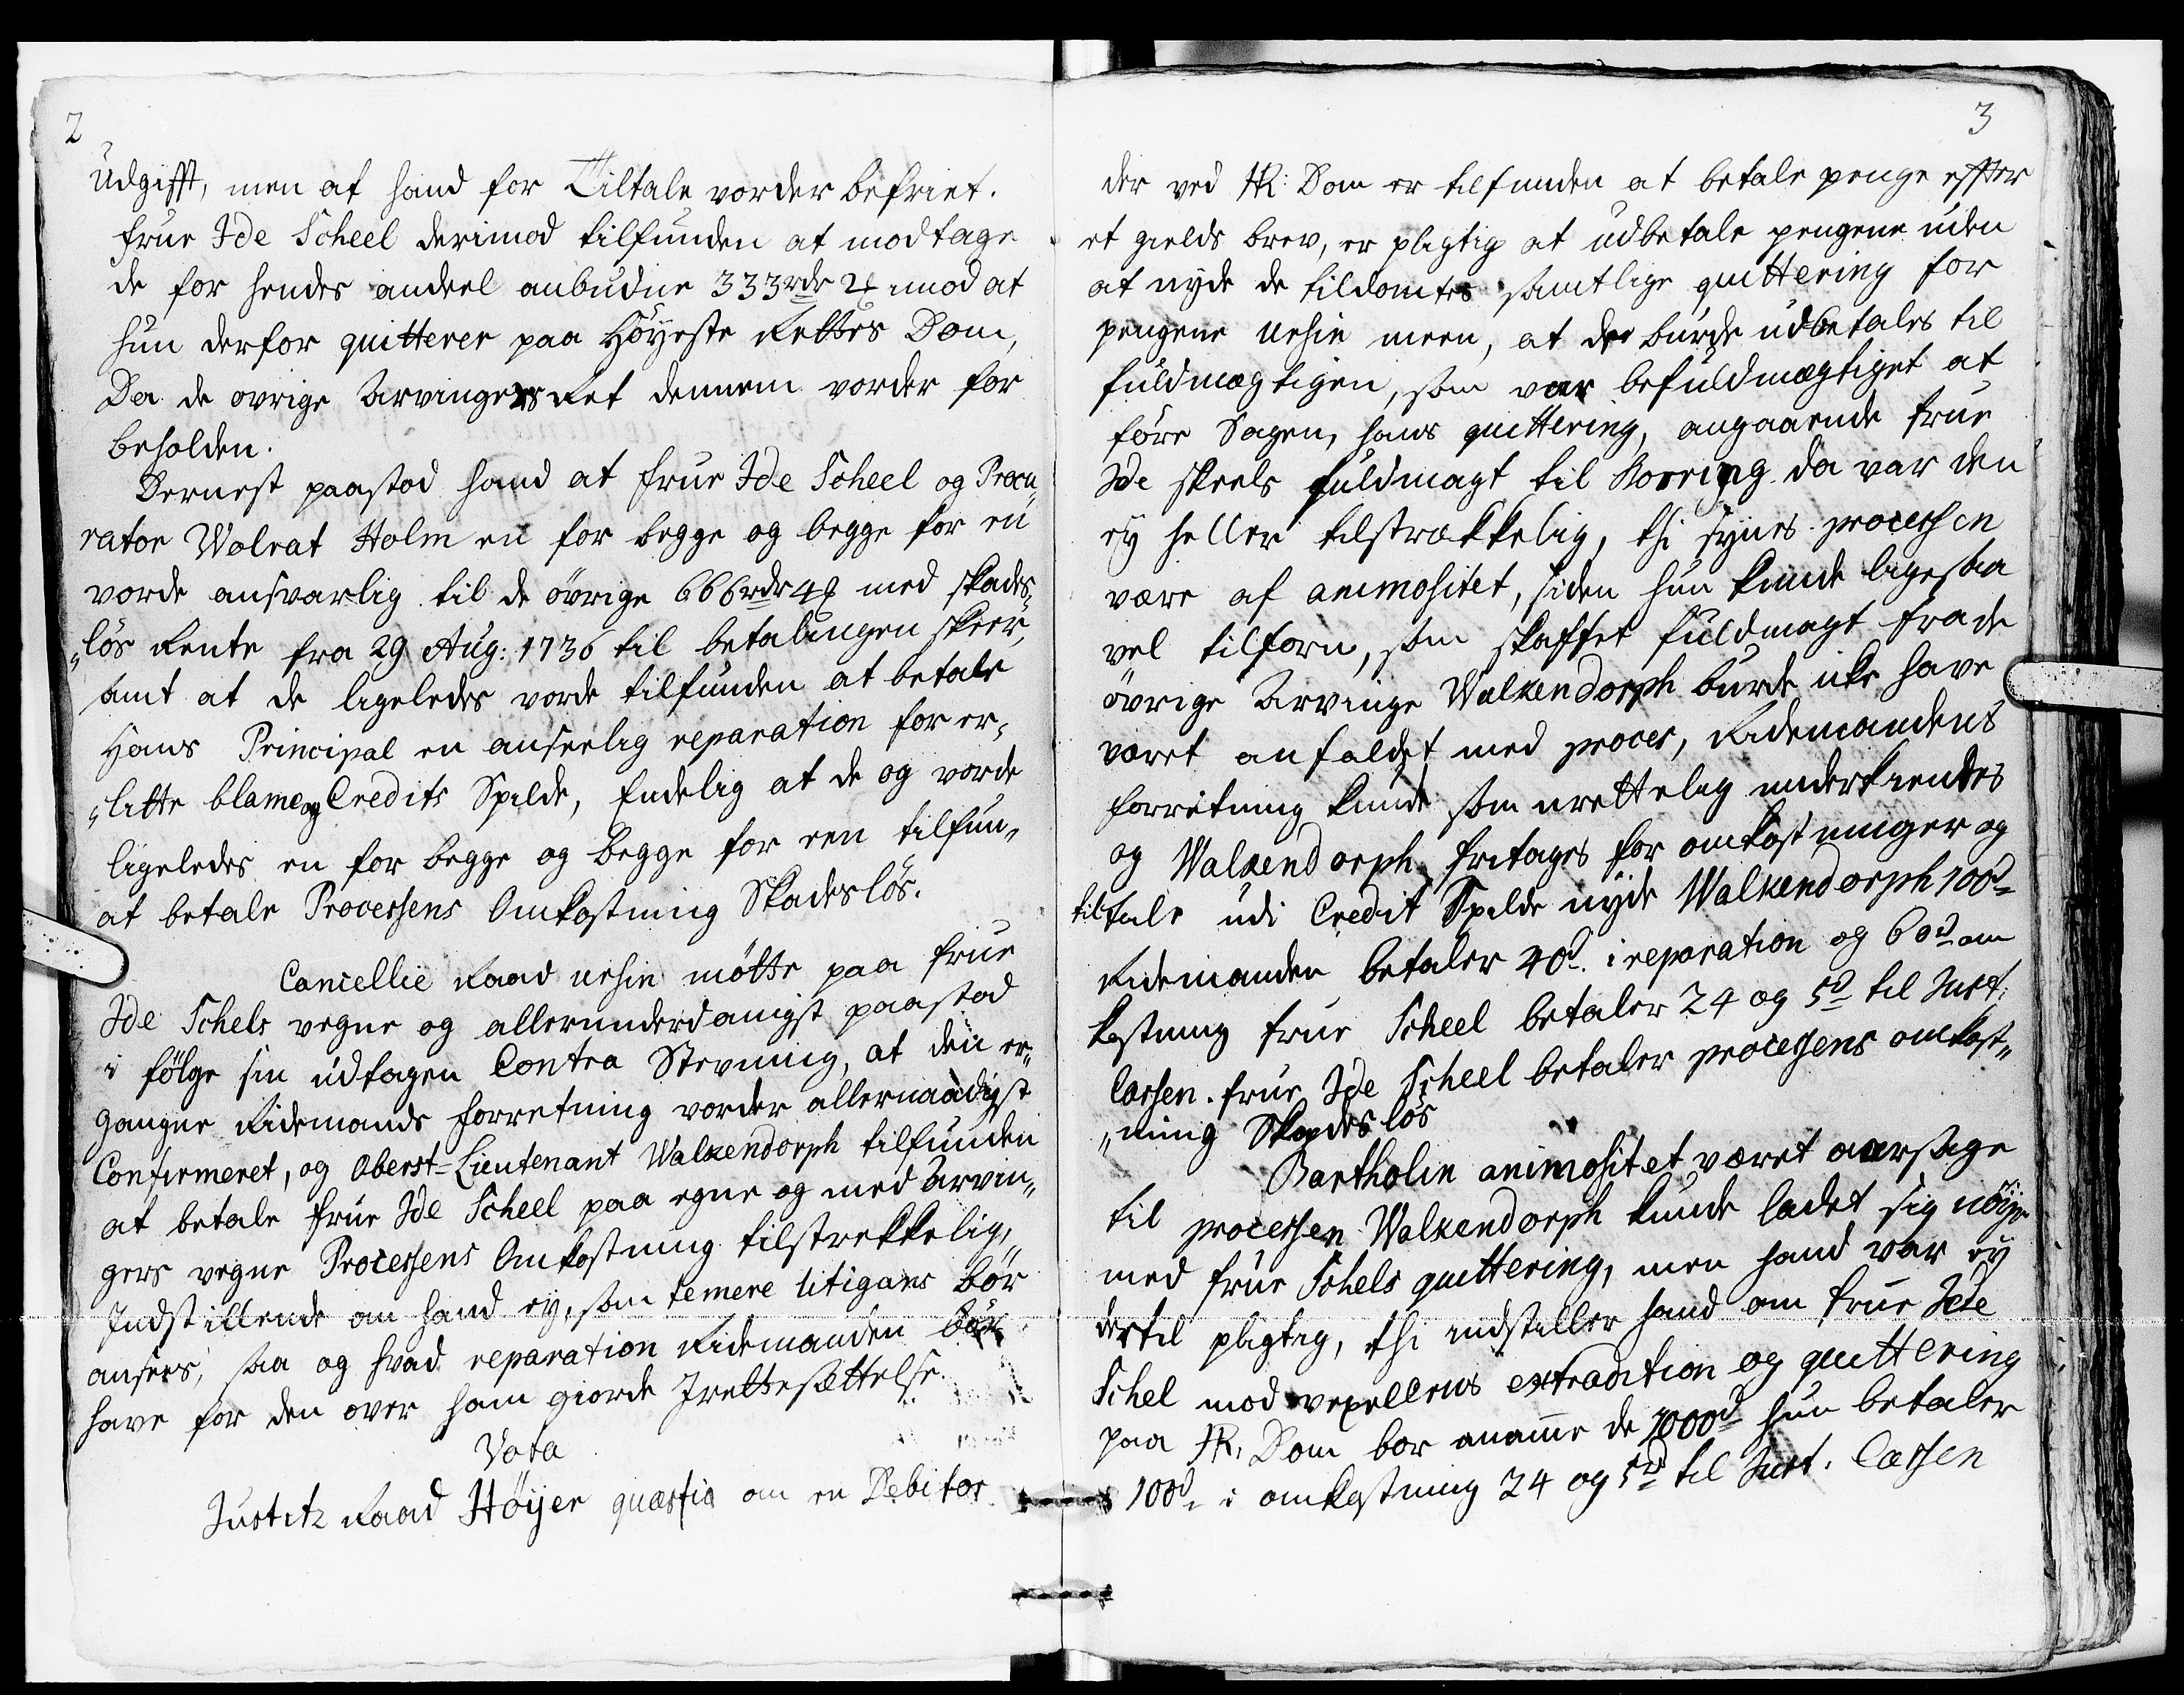 2
Udgifft, men af hand for Tiltale vorder befriet.
frue Ide Scheel derimod tilfunden at modtage
de for hendes andeel anbudne 333rdr 2 imod at
hun derfor quitterer paa Höyeste Rettes Dom,
Da de ovrige Arvingers Ret dennem vorder for
beholden.
Dernest paastod hand at frue Ide Scheel og Procu„
rator Wolrat Holm en for begge og begge for en
vorde ansvarlig til de övrige 666rdr 4 med skades„
„lös Rente fra 29 Aug: 1736 til betalingen skeer,
samt at de ligeledes vorde tilfunden at betale
Hans Principal en anseelig reparation for er„
„litte blame og Credits Spilde, Endelig at de og vorde
ligeledes en for begge og begge for een tilfun„
at betale Processens Omkostning Skadeslös.
Cancellie Raad nesin mötte paa frue
Ide Schels vegne og allerunderdanigst paastod
i fölge sin udtagen Contra Stevning, at den er„
gangne Ridemands forretning vorder allernaadigst
Confirmeret, og Oberst=Lieutenant Walkendorph tilfunden
at betale frue Ide Scheel paa egne og med Arvin„
gers vegne Processens Omkostning tilstrekkelig,
Indstillende om hand ey, som temere litigans bör
ansees, saa og hvad reparation Ridemanden bör
have for den over ham giorde Irettesættelse.
Vota
Justitz Raad Höyer quæstio om en Debitor
3
der ved HR: Dom er tilfunden at betale penge effter
et gields brev, er pligtig at udbetale pengene uden
at nyde de tildomtes samtlige quittering for
pengene nesin meen, at de burde udbetales til
fuldmægtigen, som var befuldmægtiget at
före Sagen, hans quittering, angaaende frue
Ide skeels fuldmagt til da var den
ey heller tilstrækkelig, thi synes processen
være af animositet, siden hun kunde ligesaa
vel tilforn, som skaffet fuldmagt fra de
övrige Arvinge Walkendorph burde icke have
været anfaldet med proces, Ridemandens
forretning kunde som urettelig underkiendes
og Walkendorph fritages for omkostninger og
tiltale udi Credit Spilde nyde Walkendorph 100d
Ridemanden betaler 40d. i reparation og 60d om
kostning frue Scheel betaler 24 og 5d til Just.
Cassen. frue Ide Scheel betaler processens omkost„
„ning Skadeslös
Bartholin animositet været aarsage
til processen Walkendorph kunde ladet sig nöye
med frue Schels quittering, men hand var ey
dertil pligtig, thi indstiller hand om frue Ide
Schel mod vexellens extradition og quittering
paa HR. Dom bor anamme de 1000d hun betaler
100d i omkostning 24 og 5d til Just. Cassen